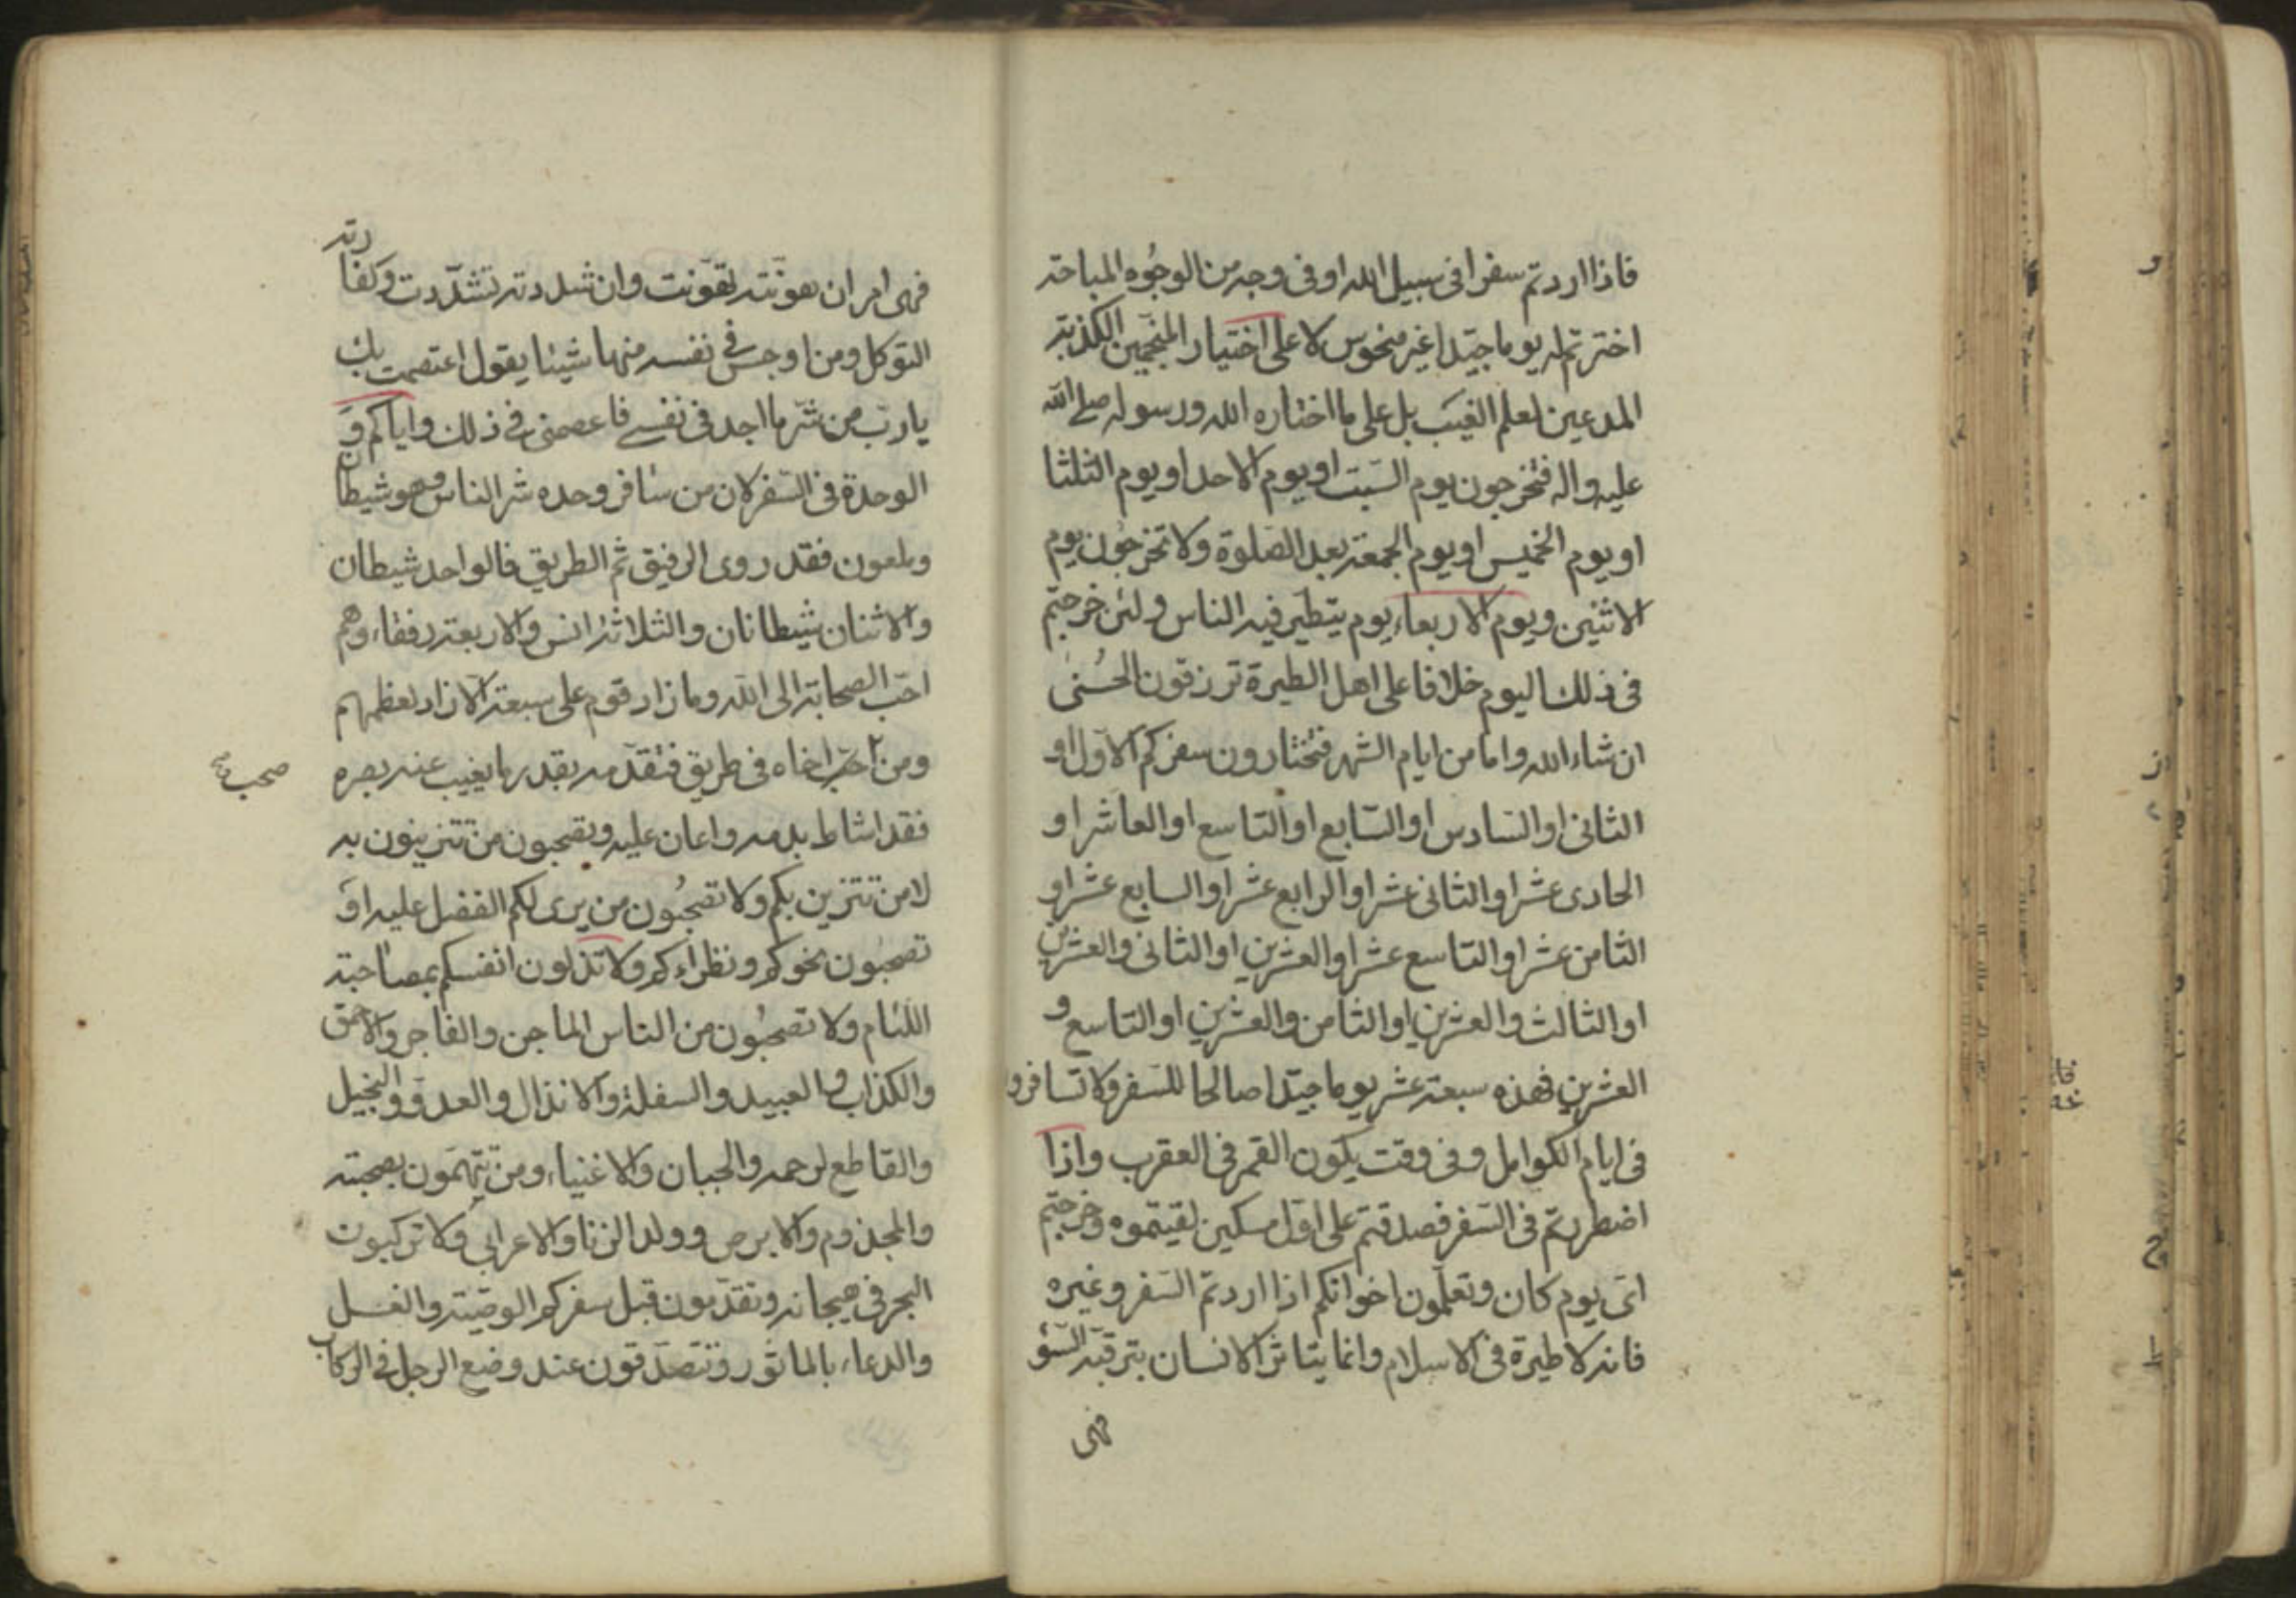 فاذا اردتم سفرا فى سبيل الله او فى وجه من الوجُوه المباحة
اخترتم له يوما جيّدا غير منحوس لا على اختيار المنجّمين الكذبة
المدعين لعلم الغيب بل على ما اختاره الله ورسوله صلى الله
عليه واله فتخرجون يوم السّبت او يوم الاحد او يوم الثلثا
او يوم الخميس او يوم الجمعة بعد الصّلوة ولا تخرجُون يوم
الاثنين ويوم الاربعاء يوم يتطيّر فيه الناس ولئن خرجتم
فى ذلك اليوم خلافا على اهل الطيرة ترزقون الحُسنى
ان شاء الله واما من ايام الشهر فتختارون سفركم الاوّل او
الثانى او السّادس او السّابع او التاسع او العاشر او
الحادى عشر او الثانى عشر او الرابع عشر او السابع عشر او
الثامن عشر او التاسع عشر او العشرين او الثانى والعشرين
او الثالث والعشرين او الثامن والعشرين او التاسع و
العشرين فهذه سبعة عشر يوما جيّدا صالحا للسّفر ولا تسافروا
فى ايام الكوامل وفى وقت يكون القمر فى العقرب واذا
اضطررتم فى السّفر فصدقتم على اوّل مسكين لقيتموه وخرجتم
اىّ يوم كان وتعلّمون اخوانكم اذا اردتم السّفر وغيره
فانه لا طيرة فى الاسلام وانما يتاثر الانسان بترقبه السّوء
فهى
فهى امر ان هونته تهوّنت وان شددته تشدّدت وكفارته
التوكل ومن اوجس فى نفسه منها شيئا يقول اعتصمت بك
يا ربّ من شرّ ما اجد فى نفسى فاعصمنى فى ذلك واياكم وَ
الوحدة فى السّفر لان من سافر وحده شر الناس وهو شيطان
وملعون فقد روى الرفيق ثم الطريق فالواحد شيطان
والاثنان شيطانان والثلاثة انس والاربعة رفقاء وهم
احبّ الصحابة الى الله وما زاد قوم على سبعة الا زاد لغطهم
ومن اخاه فى طريق فتقدّمه بقدر ما يغيب عنه بصره
صحب
فقد اشاط بدمه واعان عليه وتصحبون من تتزينون به
لا من تتزين بكم ولا تصحبُون من يرى لكم الفضل عليه او
تصحبُون نحوكم ونظراءكم ولا تذلون انفسكم بمصاحبة
اللئام ولا تصحبُون من الناس الماجن والفاجر والاحمق
والكذاب والعبيد والسفلة والانذال والعدوّ والبخيل
والقاطع لرحمه والجبان والاغنياء ومن تتهمَون بصحبته
والمجذوم والابرص وولد الزنا والاعرابى ولا تركبون
البحر فى هيجانه وتقدّمون قبل سفركم الوصيّة والغسل
والدعاء بالماثور وتتصدّقون عند وضع الرجل فى الركاب